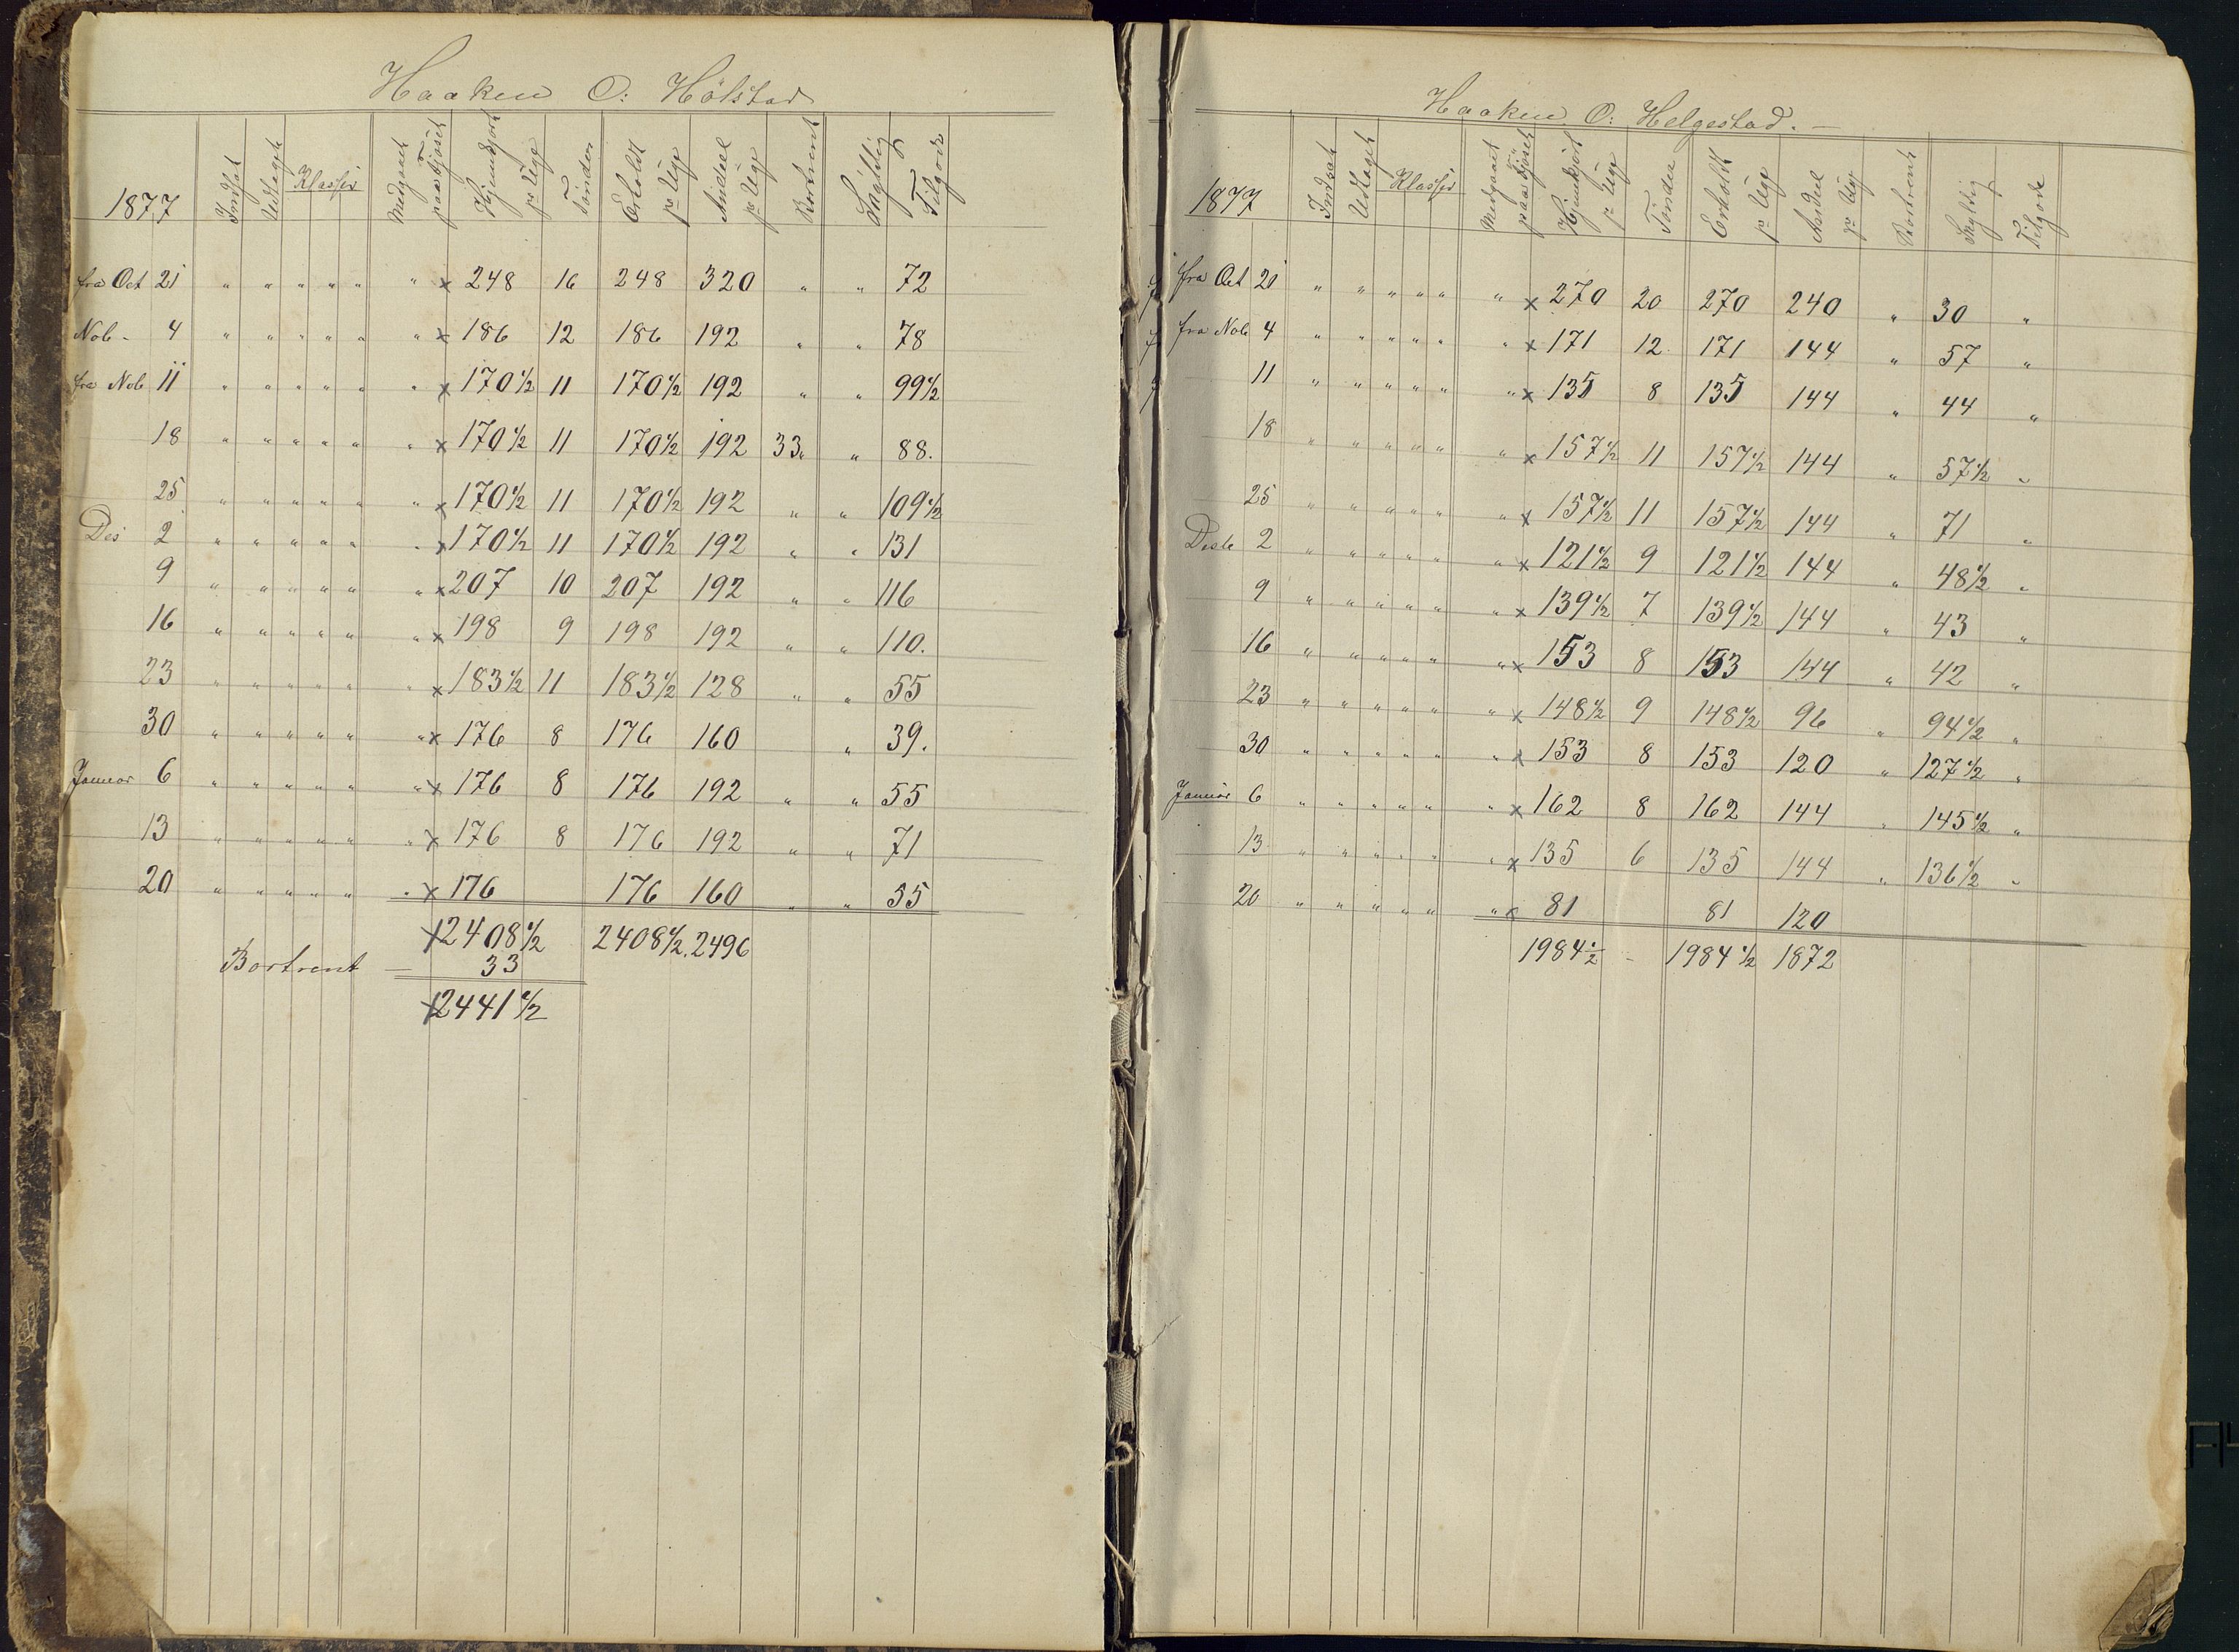 Haaken O: Hølstad
1877 Indsat Udtaget Klasser Medgaaet paa Fjøset Hjemkjørt pr Uge Tønder Erholdt pr Uge Andeel pr Uge Bortrent Skyldig Tilgode
fra Oct 21 " " " " " " x 248 16 248 320 " " 72
Nob - 4 " " " " " " x 186 12 186 192 " " 78
fra Nob 11 " " " " " " x 170 1/2 11 170 1/2 192 " " 99 1/2
18 " " " " " " x 170 1/2 11 170 1/2 192 33 " " 88.
25 " " " " " " x 170 1/2 11 170 1/2 192 " " 109 1/2
Des 2 " " " " " " x 170 1/2 11 170 1/2 192 " " 131
9 " " " " " " x 207 10 207 192 " " 116
16 " " " " " " x 198 9 198 192 " " 110.
23 " " " " " " x 183 1/2 11 183 1/2 128 " " 55
30 " " " " " " x 176 8 176 160 " 39.
Januar 6 " " " " " " x 176 8 176 192 " " 55
13 " " " " " " x 176 8 176 192 " " 71
20 " " " " " " x 176 176 160 " " 55
x 2408 1/2 2408 1/2. 2496
Bortrent — 33
x 2441 1/2
Haaken O: Helgestad. —
1877 Indsat Udtaget Klasser Medgaaet paa Fjøset Hjemkjørt pr Uge Tønder Erholdt pr Uge Andeel pr Uge Bortrent Skyldig Tilgode
fra Oct 21 " " " " " " x 270 20 270 240 " 30 "
fra Nob 4 " " " " " " x 171 12. 171 144 " 57 "
11 " " " " " " x 135 8 135 144 " 44 "
18 " " " " " " x 157 1/2 11 157 1/2 144 " 57 1/2 "
25 " " " " " " x 157 1/2 11 157 1/2 144 " 71 "
Desb 2 " " " " " " x 121 1/2 9 121 1/2 144 " 48 1/2 "
9 " " " " " " x 139 1/2 7 139 1/2 144 " 43 "
16 " " " " " " x 153 8 153 144 " 42 "
23 " " " " " " x 148 1/2 9 148 1/2 96 " 94 1/2 "
30 " " " " " " x 153 8 153 120 " 127 1/2 "
Januar 6 " " " " " " x 162 8 162 144 " 145 1/2 "
13 " " " " " " x 135 6 135 144 " 136 1/2 "
20 " " " " " " x 81 81 120
1984 1/2 - 1984 1/2 1872